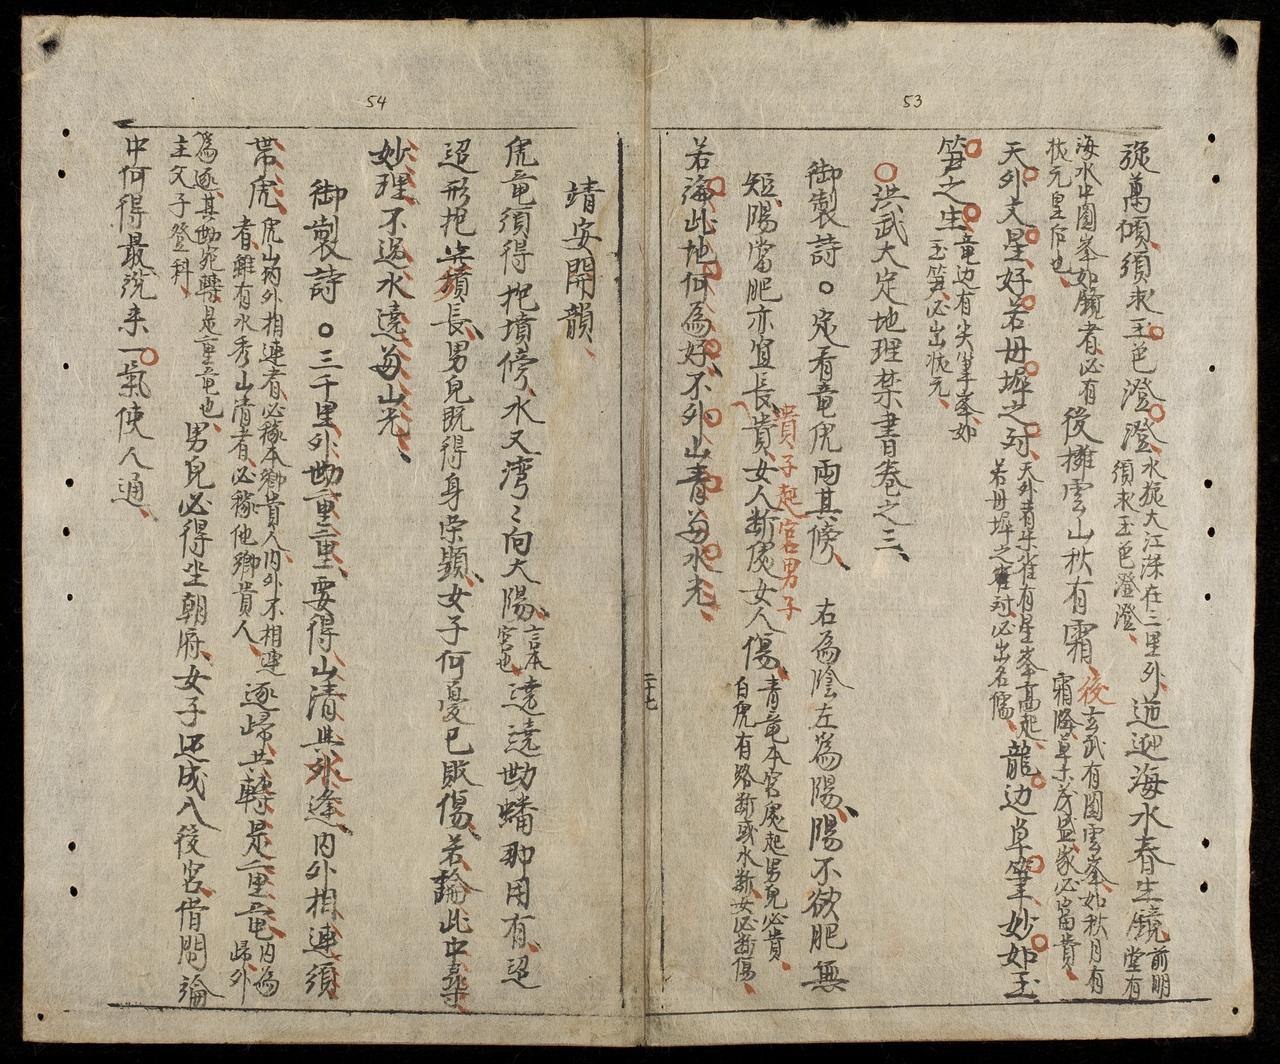 53
旋萬傾須求玉色澄澄水旋大江洙在二里外
須求玉色澄澄迎海水春生鏡前明
堂有
海水中圓峯如鏡者必有
状元皇后也後擁雲山秋有霜後玄武有圓雲峯如秋月有
霜降草木茂盛家必富貴
天外文星好若毋墀之対天外青朱雀有星峯高起
若毋墀之雀対必出名儒龍边草筆妙如玉
笋之生竜边有尖筆峯如
玉笋必出状元
洪武大定地理禁書卷之三
御製詩○定看竜虎両其傍右為陰左為陽陽不欲肥無
短陽當肥亦宜長貴女人断処女人傷青竜本宮処起男児必貴
白虎有路断或水断女必断傷
貴子起宮男子
若海此地何為好不外山青与水光
二十七
54
靖安開韻
虎竜須得把墳傍水又湾〻向大陽言本
宮也遶遶拗蟠聊用有迢
迢形把穴積長男兒既得身栄顕女子何憂已敗傷若論此中尋
妙理不過水遶与山光
御製詩○三千里外拗重重要得山清其外逢内外相連須
帯虎虎山內外相連者必稼本鄉貴人內外不相連
者雖有水秀山清者必稼他鄉貴人逐歸其轉是重竜内為
歸外
為逐其拗宛轉是重竜也
主文子登科男兒必得坐朝府女子还成入後宮借問論
中何得最說来一氣使人通